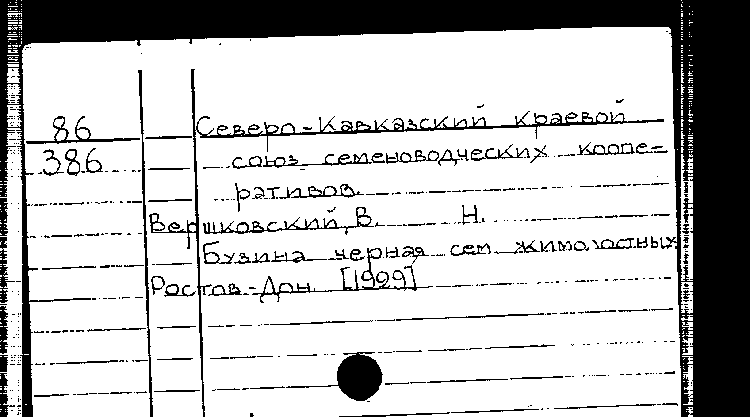 86
386
Северо-Кавказский краевой
союз семеноводческих коопе-
ративов.
Вершковский, В. Н.
Бузина черная сем. жимолостных
Ростов-Дон [1929]